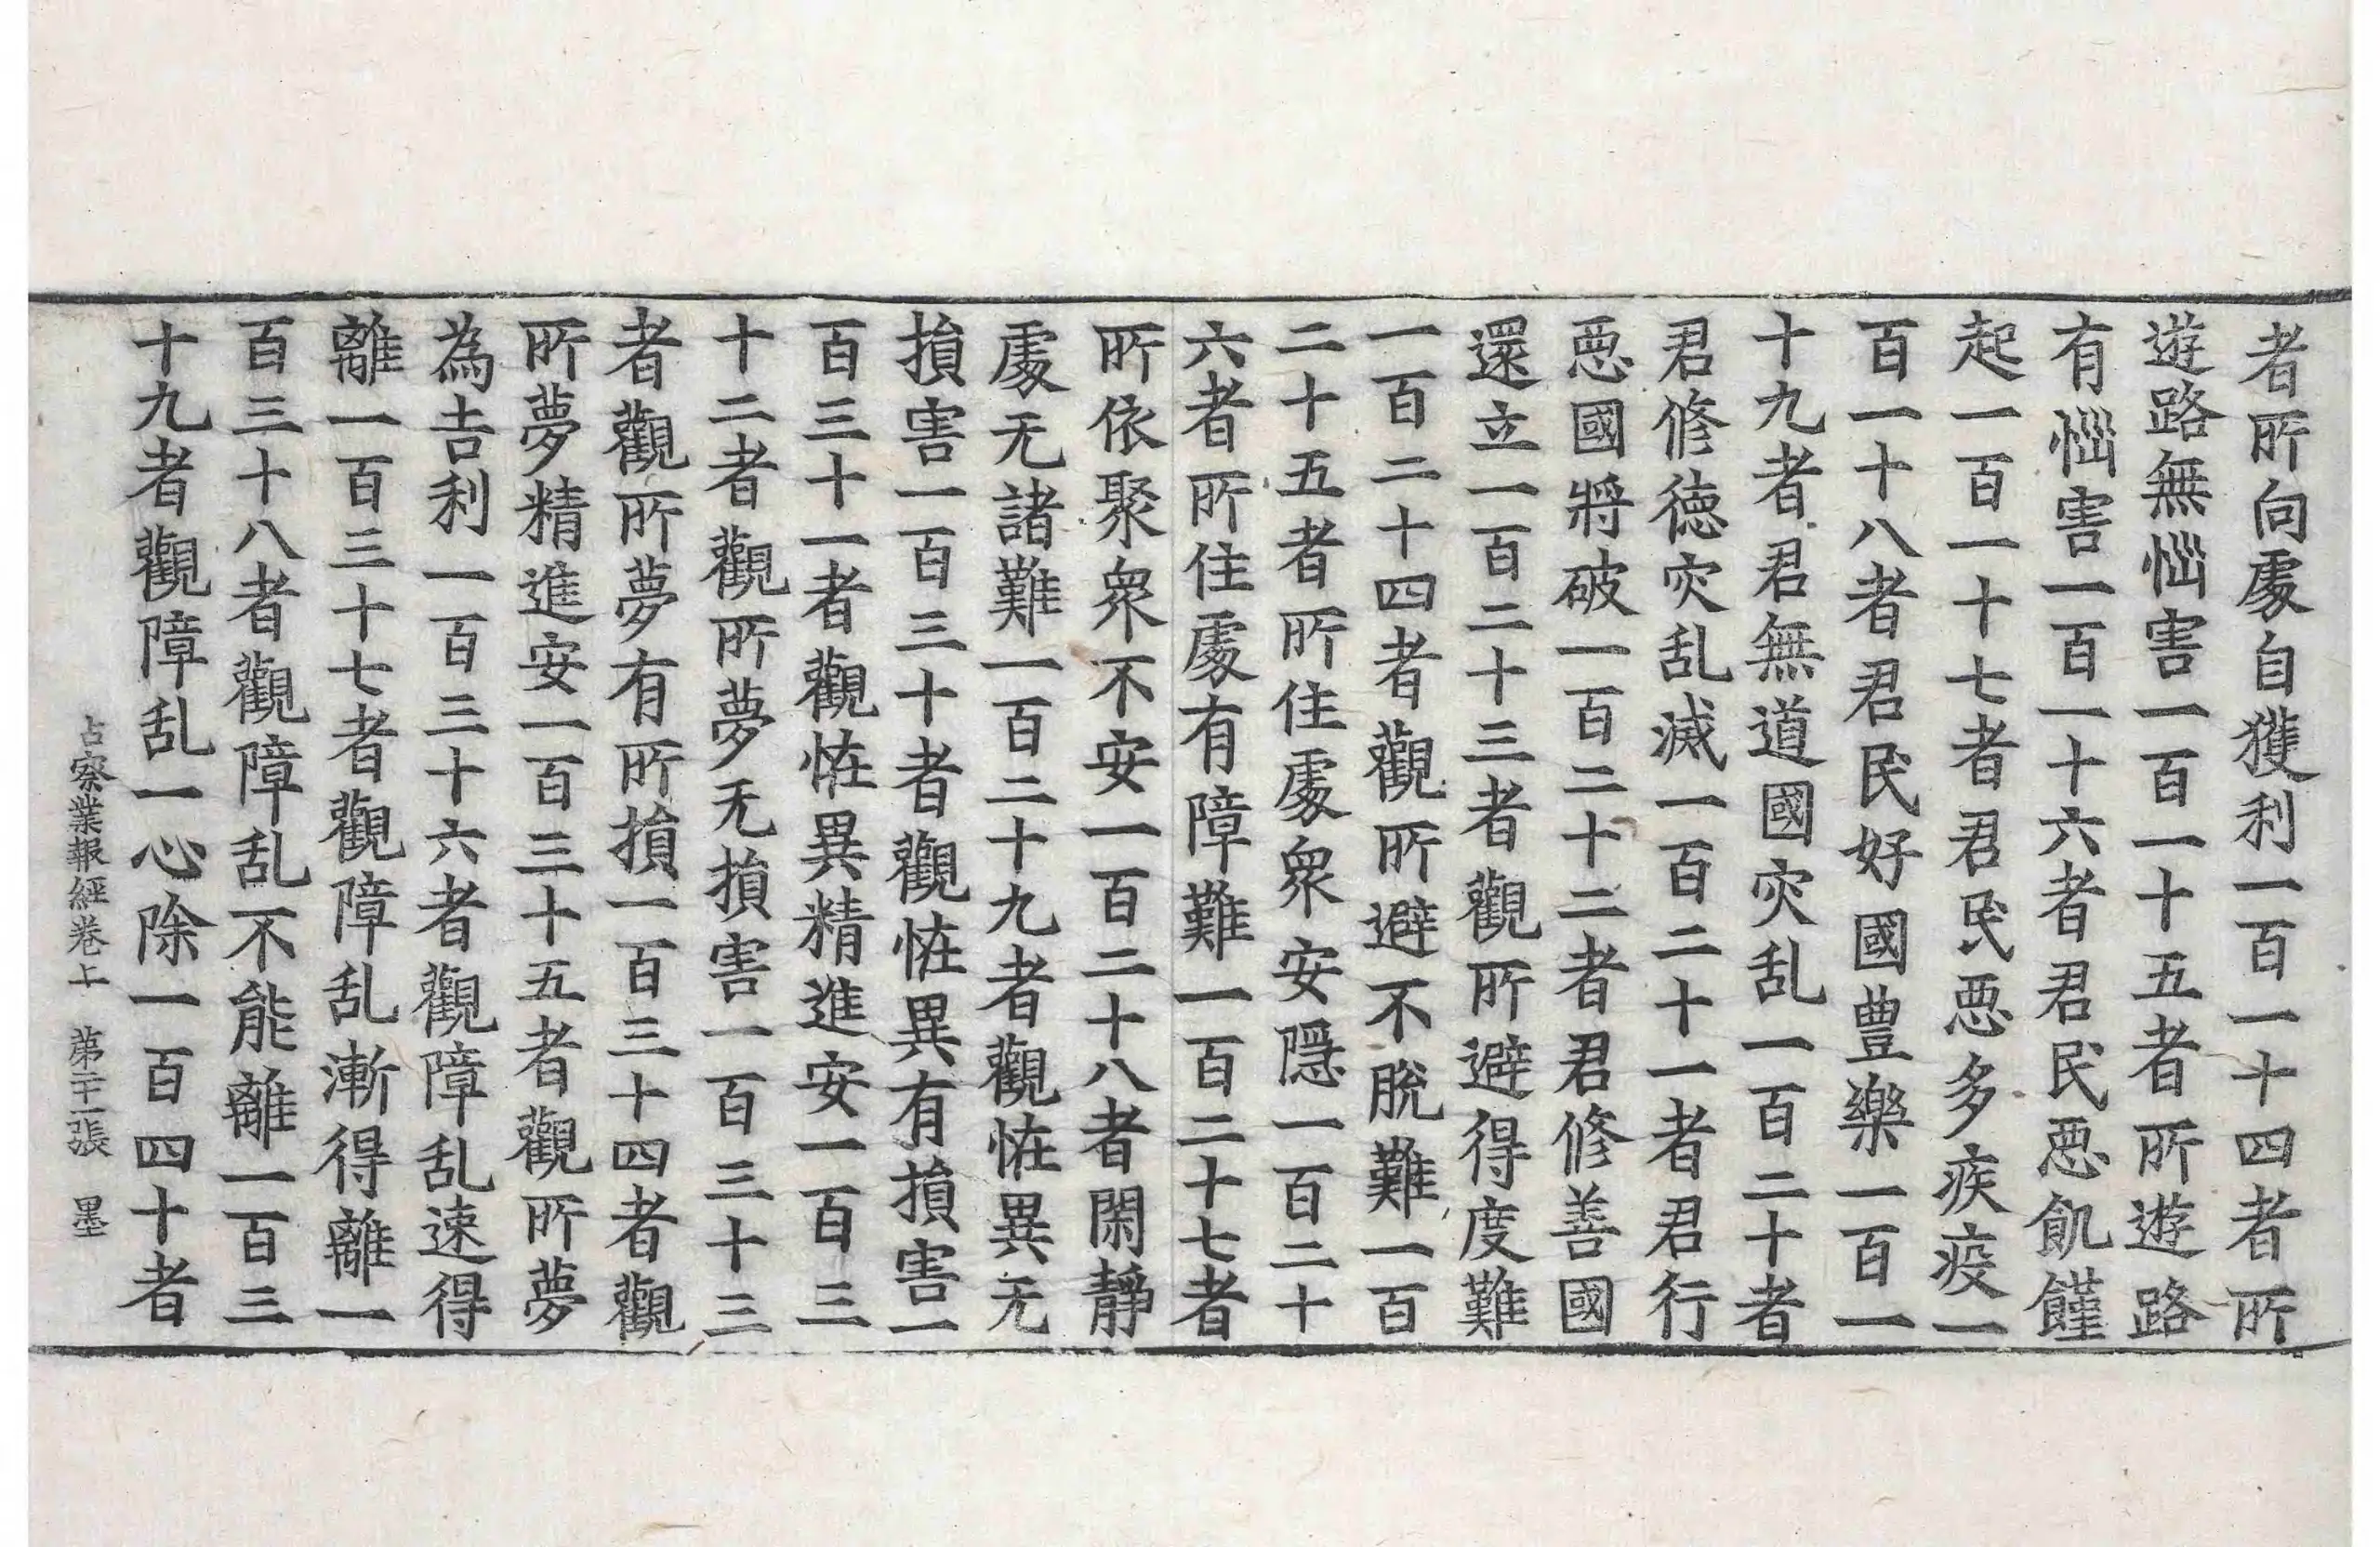 者所向處自獲利一百一十四者所
遊路無惱害一百一十五者所遊路
有惱害一百一十六者君民惡飢饉
起一百一十七者君民惡多疾疫一
百一十八者君民好國豊樂一百一
十九者君無道國灾乱一百二十者
君修徳灾乱滅一百二十一者君行
惡國將破一百二十二者君修善國
還立一百二十三者觀所避得度難
一百二十四者觀所避不脫難一百
二十五者所住處衆安隱一百二十
六者所住處有障難一百二十七者
所依聚衆不安一百二十八者閑靜
處无諸難一百二十九者觀恠異无
損害一百三十者觀恠異有損害一
百三十一者觀恠異精進安一百三
十二者觀所夢无損害一百三十三
者觀所夢有所損一百三十四者觀
所夢精進安一百三十五者觀所夢
為吉利一百三十六者觀障乱速得
離一百三十七者觀障乱漸得離一
百三十八者觀障乱不能離一百三
十九者觀障乱一心除一百四十者
占察業報經卷上 第二十二張 墨